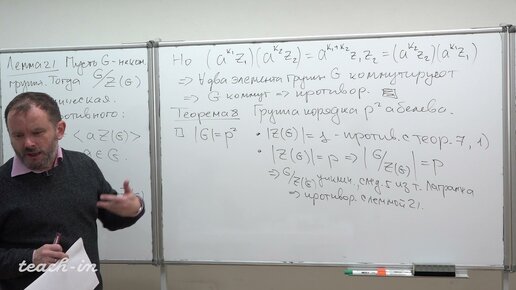 Лемма 21. Пусть G - неком.
группа. Тогда G/Z(G)
ическая.
ротивного:
<aZ(G)>
∈ G.
Но (a^{k₁}z₁)(a^{k₂}z₂) = a^{k₁+k₂}z₁z₂ = (a^{k₂}z₂)(a^{k₁}z₁)
⇒ ∀ два элемента группы G коммутируют
⇒ G коммут ⇒ противор.
Теорема 8 Группа порядка p² абелева.
□ |G| = p² • |Z(G)| = 1 - против. с теор. 7, 1)
• |Z(G)| = p ⇒ |G/Z(G)| = p
⇒ G/Z(G) циклич. след. 5 из т. Лагранжа
⇒ противор. с леммой 21.
teach-in